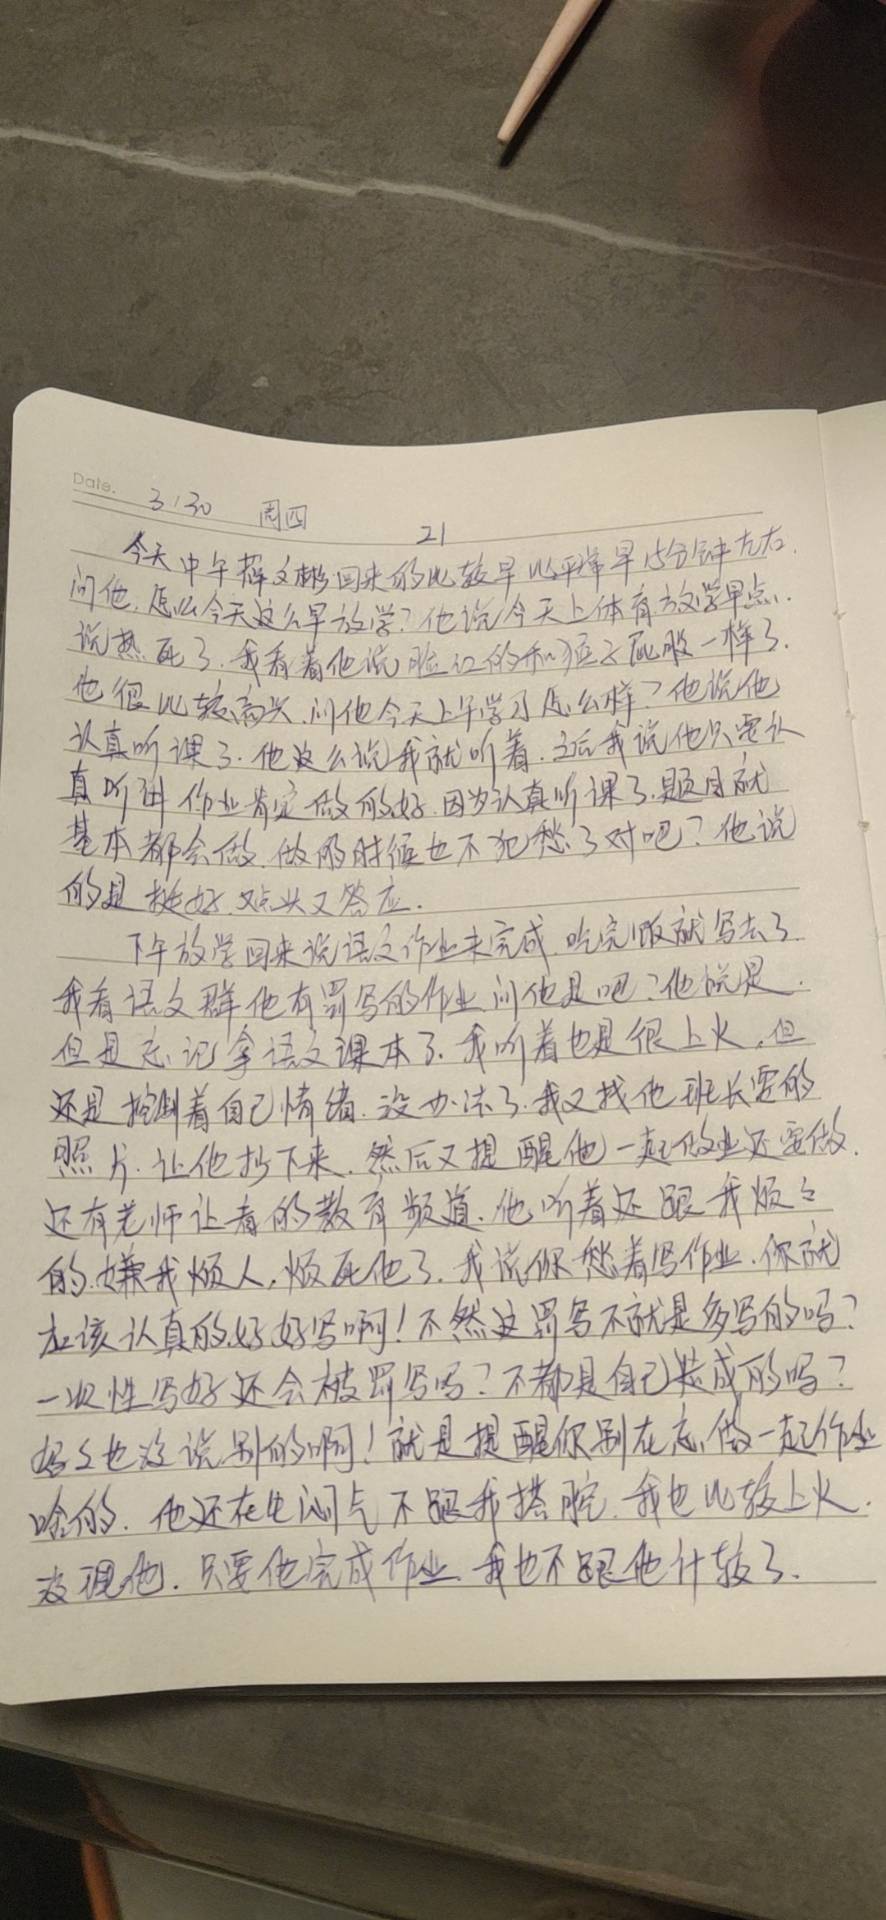 Date. 3/30 周四
21
今天中午薛文彬回来的比较早比平常早15分钟左右.
问他.怎么今天这么早放学?他说今天上体育放学早点.
说热死了.我看着他说脸红的和猴子屁股一样了.
他很比较高兴.问他今天上午学习怎么样?他说他
认真听课了.他这么说我就听着.之后我说他只要认
真听讲作业肯定做的好.因为认真听课了.题目就
基本都会做.做的时候也不犯愁了对吧?他说
的是挺好.又点头又答应.
下午放学回来说语文作业未完成.吃完饭就写去了.
我看语文群他有罚写的作业问他是吧?他说是.
但是忘记拿语文课本了.我听着也是很上火.但
还是控制着自己情绪.没办法了.我又找他班长要的
照片.让他抄下来.然后又提醒他一起作业还要做.
还有老师让看的教育频道.他听着还跟我烦々
的.嫌我烦人,烦死他了.我说你愁着写作业.你就
应该认真的好好写啊!不然这罚写不就是多写的吗?
一次性写好还会被罚写吗?不都是自己造成的吗?
妈々也没说别的啊!就是提醒你别在忘.做一起作业
啥的.他还在生闷气不跟我搭腔.我也比较上火.
没理他.只要他完成作业.我也不跟他计较了.